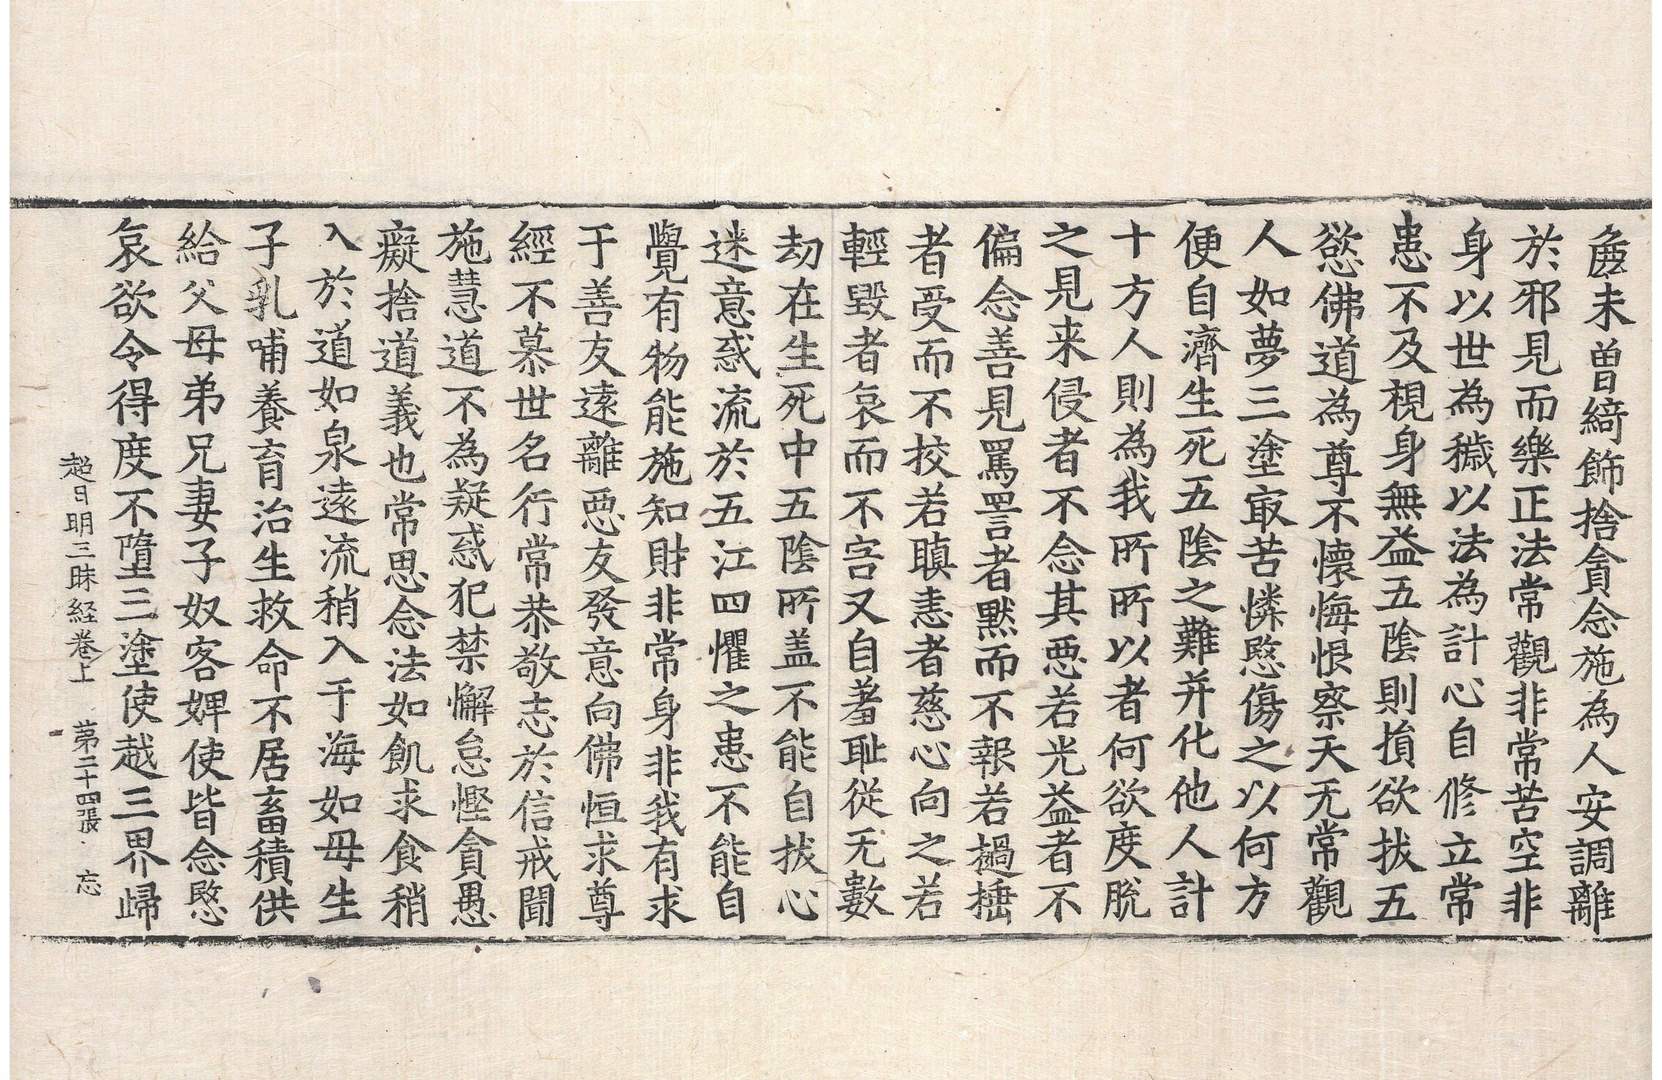 麁未曾綺飾捨貪念施為人安調離
於邪見而樂正法常觀非常苦空非
身以世為穢以法為計心自修立常
患不及視身無益五陰則損欲拔五
慾佛道為尊不懷悔恨察天无常觀
人如夢三塗㝡苦憐愍傷之以何方
便自濟生死五陰之難并化他人計
十方人則為我所所以者何欲度脫
之見来侵者不念其惡若光益者不
偏念善見罵詈者默而不報若撾捶
者受而不挍若瞋恚者慈心向之若
輕毀者哀而不害又自羞耻從无數
劫在生死中五陰所盖不能自拔心
迷意惑流於五江四懼之患不能自
覺有物能施知財非常身非我有求
于善友遠離惡友發意向佛恒求尊
經不慕世名行常恭敬志於信戒聞
施慧道不為疑惑犯禁懈怠慳貪愚
癡捨道義也常思念法如飢求食稍
入於道如泉遠流稍入于海如母生
子乳哺養育治生救命不居畜積供
給父母弟兄妻子奴客婢使皆念愍
哀欲令得度不墮三塗使越三界歸
超日明三昧経卷上 第二十四張 忘